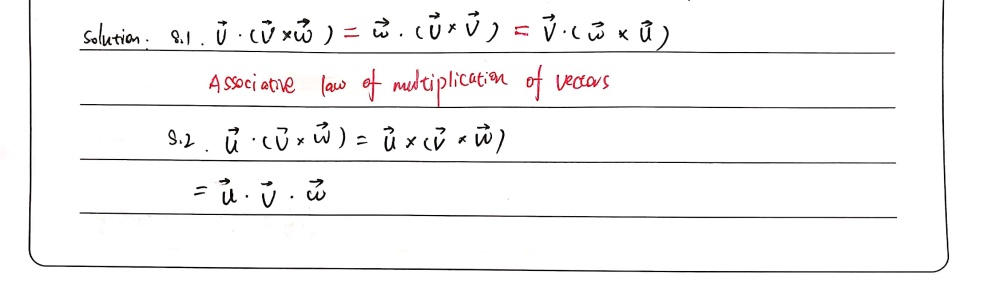 Solution: 8.1. $\vec{U} \cdot (\vec{U} \times \vec{w}) = \vec{w} \cdot (\vec{U} \times \vec{V}) = \vec{V} \cdot (\vec{w} \times \vec{u})$
Associative law of multiplication of vectors
8.2. $\vec{u} \cdot (\vec{U} \times \vec{w}) = \vec{u} \times (\vec{v} \times \vec{w})$
$= \vec{u} \cdot \vec{v} \cdot \vec{w}$